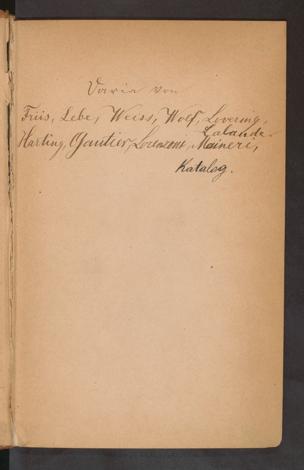 Varia von
Friis, Lebe, Weiss, Wolf, Lovering,
Lalande
Harting, Gautier, Lorenzoni, Maineri,
Katalog.